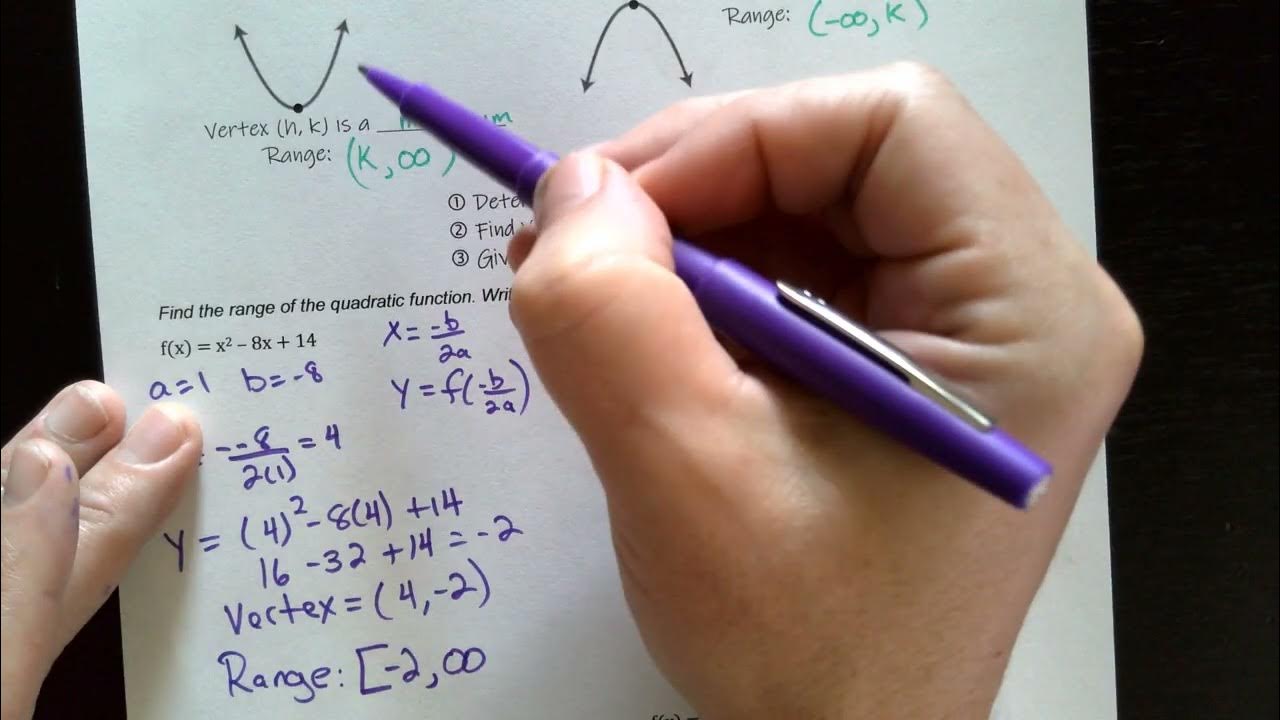 Range: (-∞, K)
Vertex (h, k) is a
Range: (K, ∞)
①
② Find
③
Find the range of the quadratic function.
f(x) = x² – 8x + 14
x = -b/2a
a=1 b=-8
y = f(-b/2a)
= - -8/2(1) = 4
y = (4)² - 8(4) + 14
16 - 32 + 14 = -2
Vertex = (4, -2)
Range: [-2, ∞